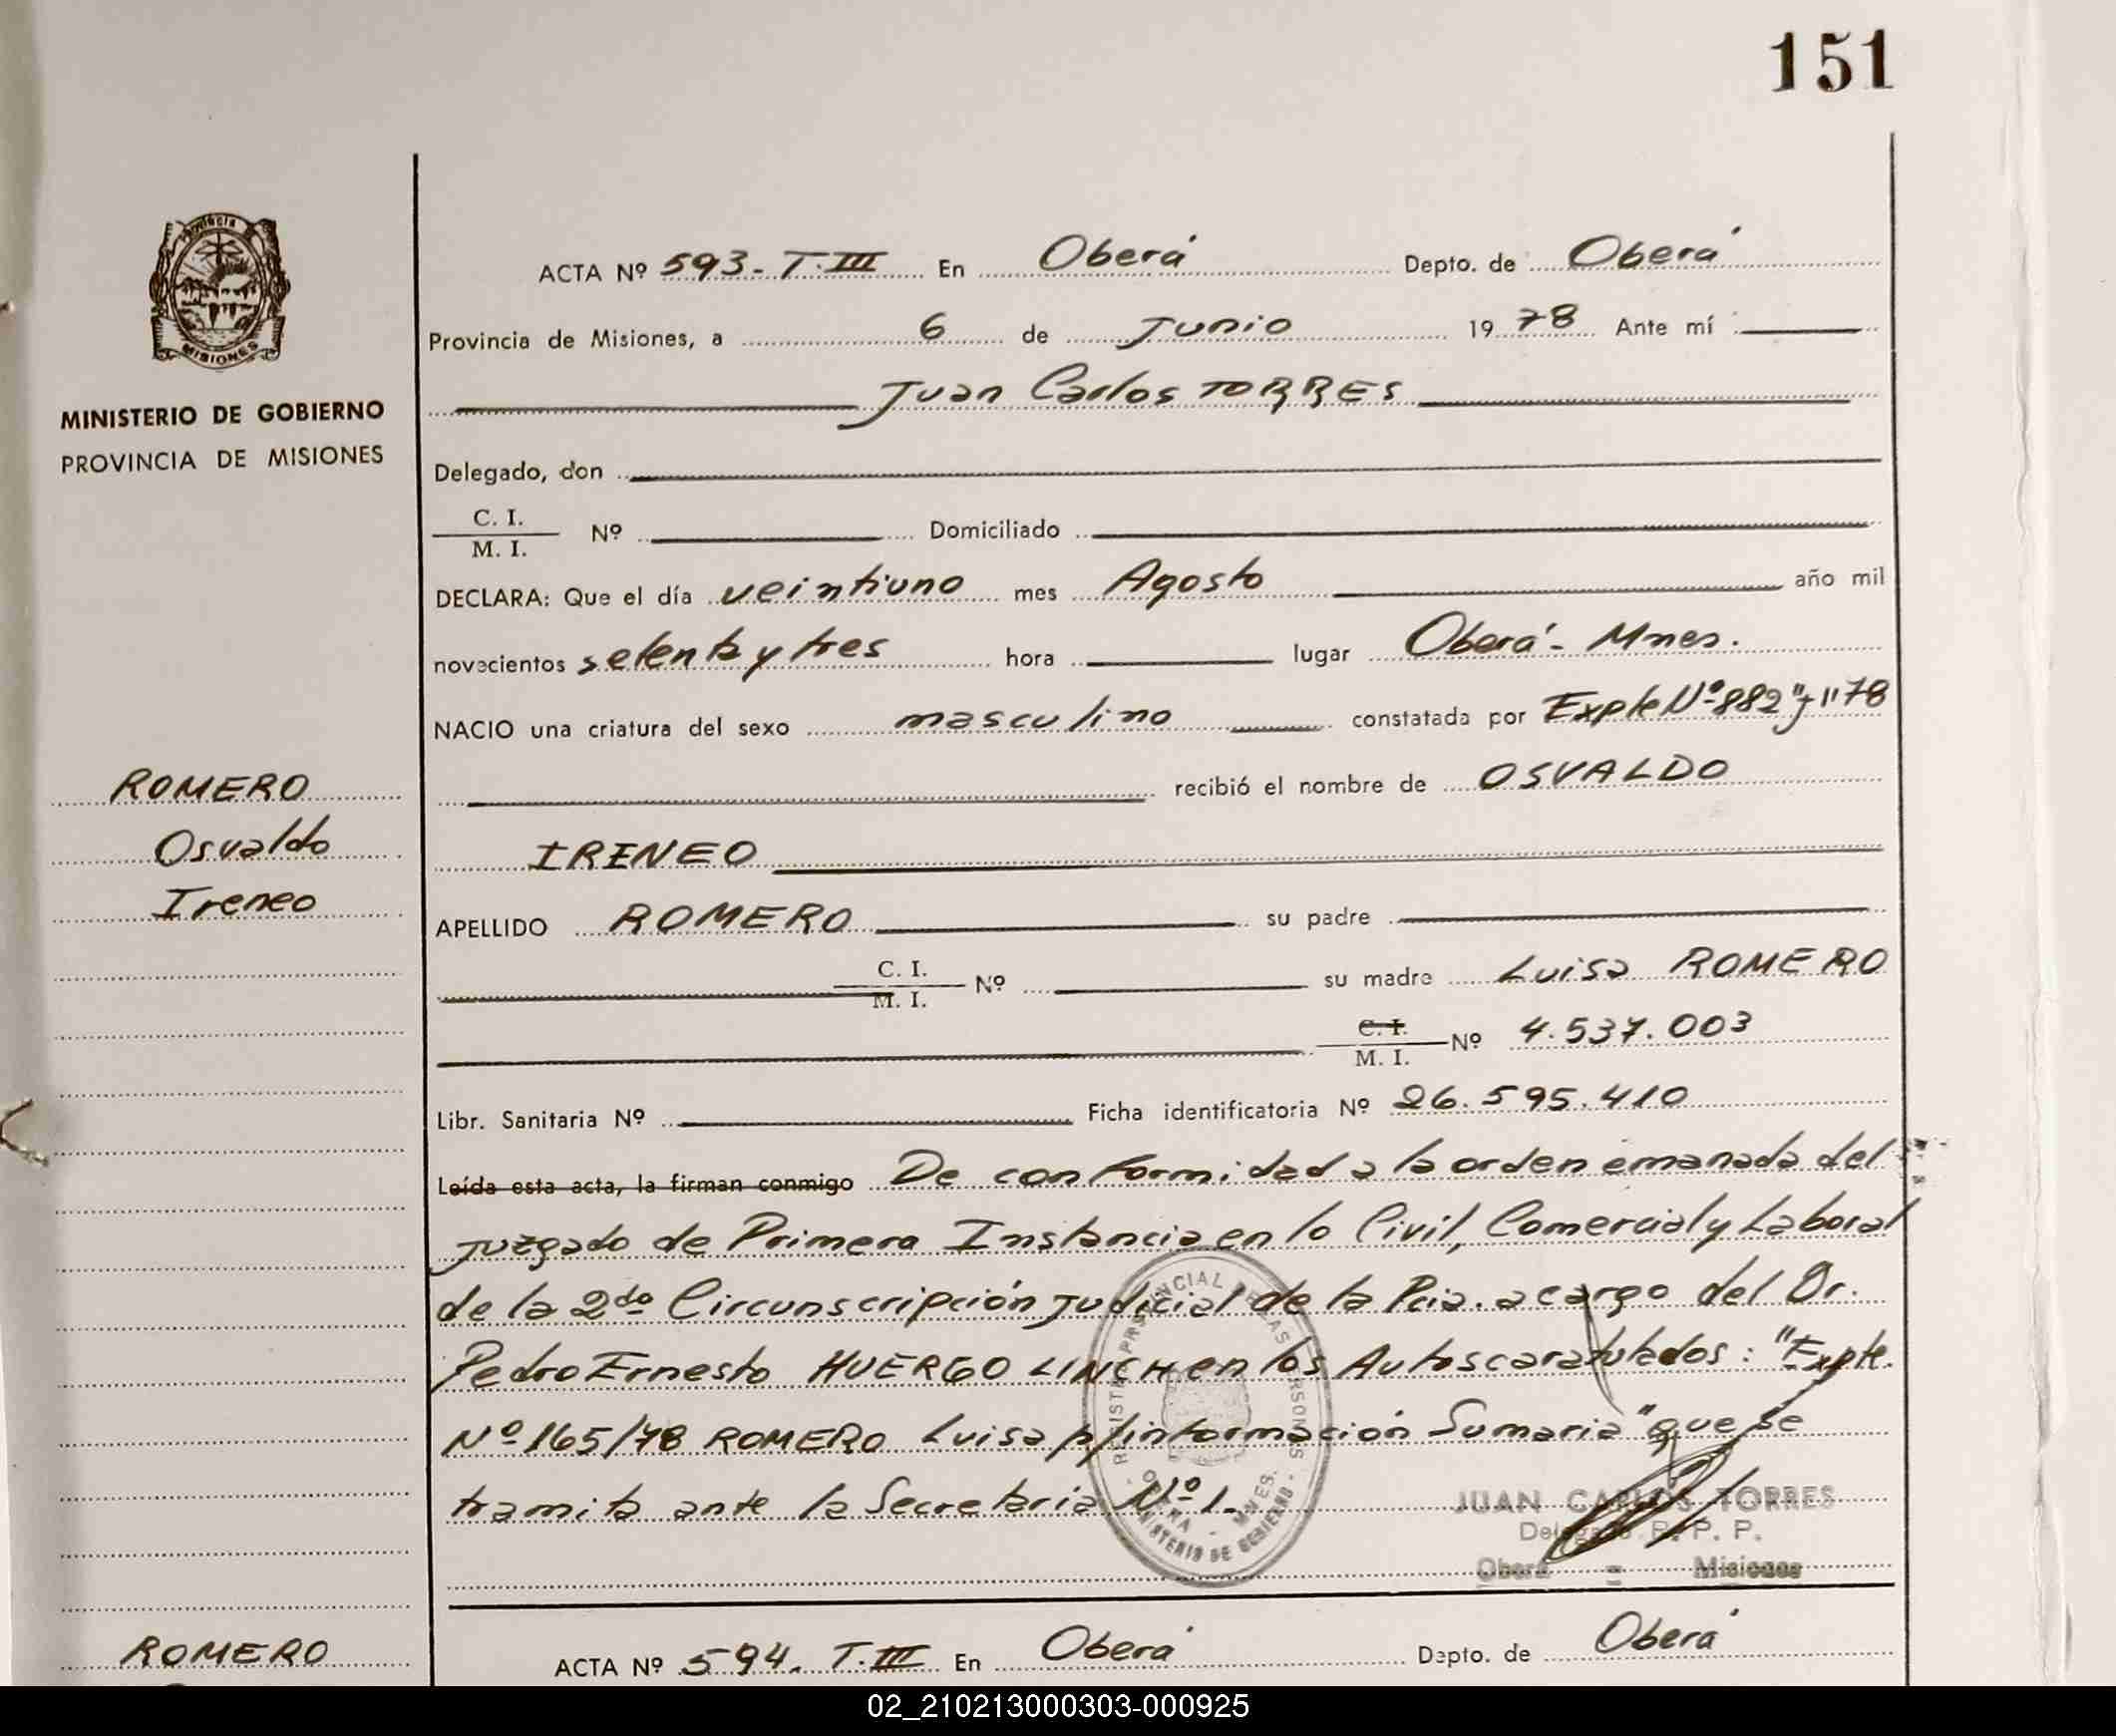 151
Provincia
MISIONES
MINISTERIO DE GOBIERNO
PROVINCIA DE MISIONES
ACTA Nº 593 - T. III En Oberá Depto. de Oberá
Provincia de Misiones, a 6 de Junio 1978 Ante mí
Juan Carlos TORRES
Delegado, don
C. I.
M. I. Nº Domiciliado
DECLARA: Que el día veintiuno mes Agosto año mil
novecientos setenta y tres hora lugar Oberá - Mnes.
NACIO una criatura del sexo masculino constatada por Expte Nº 882 "J" 78
ROMERO
recibió el nombre de OSVALDO
Osvaldo
IRENEO
Ireneo
APELLIDO ROMERO su padre
C. I.
M. I. Nº su madre Luisa ROMERO
C. I.
M. I. Nº 4.537.003
Libr. Sanitaria Nº Ficha identificatoria Nº 26.595.410
Leída esta acta, la firman conmigo De conformidad a la orden emanada del
Juzgado de Primera Instancia en lo Civil, Comercial y Laboral
de la 2da Circunscripción Judicial de la Pcia. a cargo del Dr.
Pedro Ernesto HUERGO LINCH en los Autos caratulados: "Expte.
Nº 165/78 ROMERO Luisa p/información Sumaria" que se
tramita ante la Secretaría Nº 1.
REGISTRO PROVINCIAL DE LAS PERSONAS
OBERA - MNES.
MINISTERIO DE GOBIERNO
JUAN CARLOS TORRES
Delegado R. P. P.
Oberá - Misiones
ROMERO
ACTA Nº 594. T. III En Oberá Depto. de Oberá
02_210213000303-000925